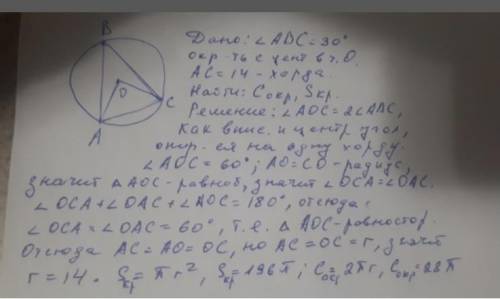 B
O
C
A
Дано: ∠ABC=30°
окр-ть с цент в т.О.
AC=14-хорда.
Найти: Cокр, Sкр.
Решение: ∠AOC=2∠ABC,
как впис. и центр угол,
опир-ся на одну хорду.
∠AOC=60°; AO=CO-радиус,
значит △AOC-равноб, значит ∠OCA=∠OAC.
∠OCA+∠OAC+∠AOC=180°, отсюда:
∠OCA=∠OAC=60°, т.е. △AOC-равностор.
Отсюда AC=AO=OC, но AO=OC=r, значит
r=14. Sкр=πr², Sкр=196π; Cокр=2πr, Cокр=28π